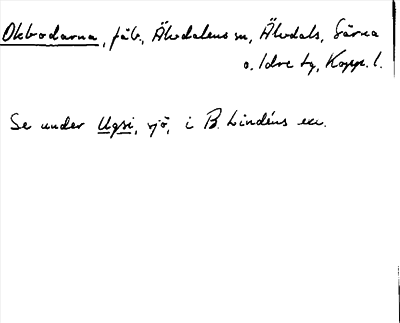 Okbodarna, fäb., Älvdalens sn, Älvdals, Särna
o. Idre tg, Kopp. l.
Se under Ugsi, sjö, i B. Lindéns ex.